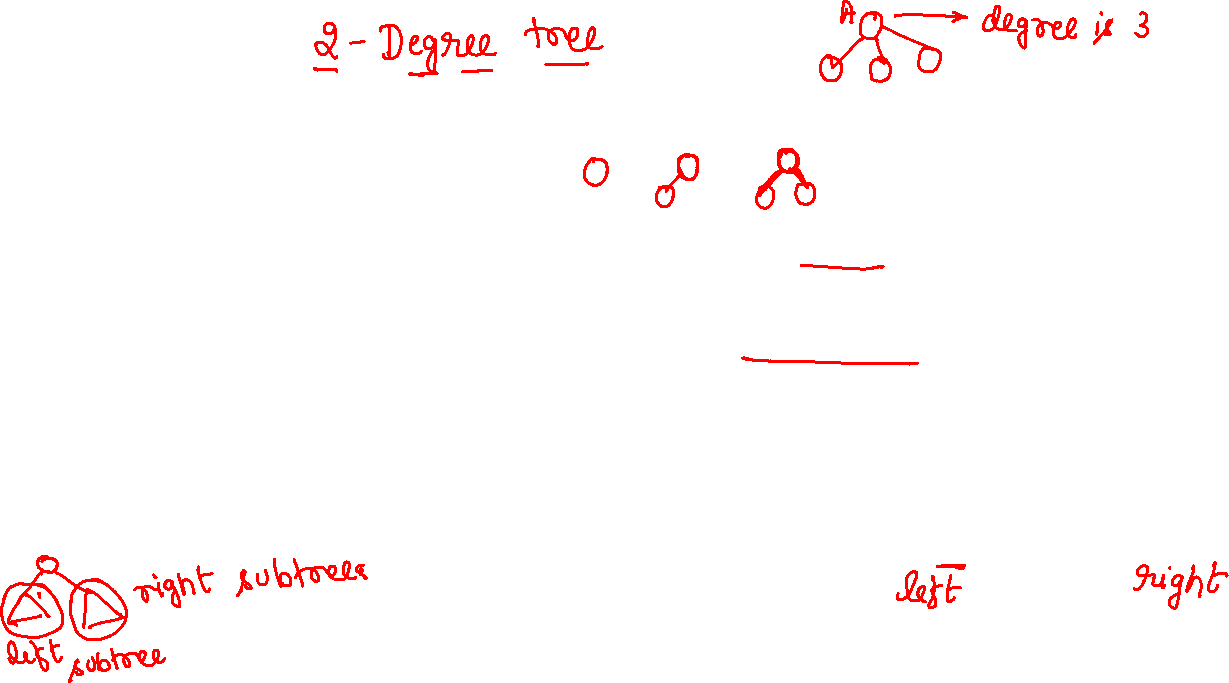 2-Degree tree
A
degree is 3
right subtrees
left subtree
left
right